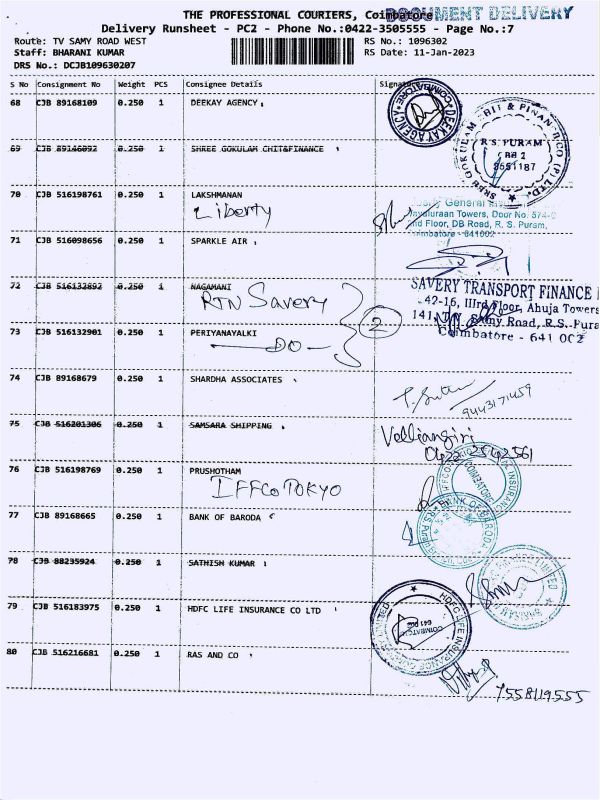 THE PROFESSIONAL COURIERS, Coimbatore
DOCUMENT DELIVERY
Delivery Runsheet - PC2 - Phone No.:0422-3505555 - Page No.:7
Route: TV SAMY ROAD WEST
RS No.: 1096302
Staff: BHARANI KUMAR
RS Date: 11-Jan-2023
DRS No.: DCJB109630207
S No Consignment No Weight PCS Consignee Details Signature
68 CJB 89168109 0.250 1 DEEKAY AGENCY
DEEKAY AGENCY COIMBATORE
69 CJB 89146092 0.250 1 SHREE GOKULAM CHIT&FINANCE
SREE GOKULAM CHIT & FINANCE CO (P) LTD.
R.S. PURAM
2551187
70 CJB 516198761 0.250 1 LAKSHMANAN
Liberty
General
Towers, Door No. 574-
nd Floor, DB Road, R. S. Puram,
Coimbatore - 641002
71 CJB 516098656 0.250 1 SPARKLE AIR
72 CJB 516132892 0.250 1 NAGAMANI
RTN Savery
2
SAVERY TRANSPORT FINANCE
42-16, IIIrd Floor, Ahuja Towers
141, T.V. Samy Road, R.S. Pura
Coimbatore - 641 002
73 CJB 516132901 0.250 1 PERIYANAYALKI
— DO —
74 CJB 89168679 0.250 1 SHARDHA ASSOCIATES
9443171459
75 CJB 516201306 0.250 1 SAMSARA SHIPPING
Valliangiri
0422 2542561
76 CJB 516198769 0.250 1 PRUSHOTHAM
IFFCO TOKYO
INSURANCE
COIMBATORE
77 CJB 89168665 0.250 1 BANK OF BARODA
BANK OF BARODA
78 CJB 88235924 0.250 1 SATHISH KUMAR
79 CJB 516183975 0.250 1 HDFC LIFE INSURANCE CO LTD
HDFC LIFE INSURANCE COMPANY LIMITED
80 CJB 516216681 0.250 1 RAS AND CO
7558119555